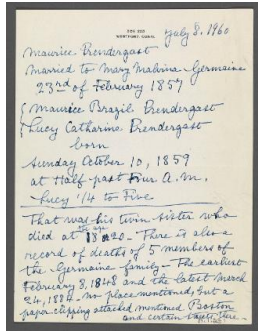 BOX 525
WESTPORT, CONN.
July 8. 1960
Maurice Prendergast
married to Mary Malvina Germaine
23rd of February 1857
Maurice Brazil Prendergast
Lucy Catharine Prendergast
born
Sunday October 10, 1859
at Half past Four A.M.
Lucy 1/4 to Five
That was his twin sister who
died at the age 18 or 20 - There is also a
record of deaths of 5 members of
the Germaine family - The earliest
February 8, 1848 and the latest March
24, 1884 - no place mentioned, but a
paper clipping attached mentioned Boston
and certain streets there -